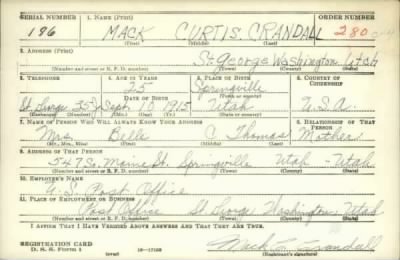 SERIAL NUMBER 1. NAME (Print) ORDER NUMBER
186 MACK CURTIS CRANDALL 280
(First) (Middle) (Last)
2. ADDRESS (Print)
St George Washington Utah
(Number and street or R. F. D. number) (Town) (County) (State)
3. TELEPHONE 4. AGE IN YEARS 5. PLACE OF BIRTH 6. COUNTRY OF CITIZENSHIP
25 Springville
DATE OF BIRTH (Town or county)
St George 353 Sept. 10 1915 Utah U.S.A.
(Exchange) (Number) (Mo.) (Day) (Yr.) (State or country)
7. NAME OF PERSON WHO WILL ALWAYS KNOW YOUR ADDRESS 8. RELATIONSHIP OF THAT PERSON
Mrs. Belle C Thomas Mother
(Mr., Mrs., Miss) (First) (Middle) (Last)
9. ADDRESS OF THAT PERSON
547 So. Main St. Springville Utah - Utah
(Number and street or R. F. D. number) (Town) (County) (State)
10. EMPLOYER'S NAME
U.S. Post Office
11. PLACE OF EMPLOYMENT OR BUSINESS
Post Office St George Washington, Utah
(Number and street or R. F. D. number) (Town) (County) (State)
I AFFIRM THAT I HAVE VERIFIED ABOVE ANSWERS AND THAT THEY ARE TRUE.
REGISTRATION CARD
D. S. S. FORM 1 (over) 16-17105 Mack C Crandall
(Registrant's signature)